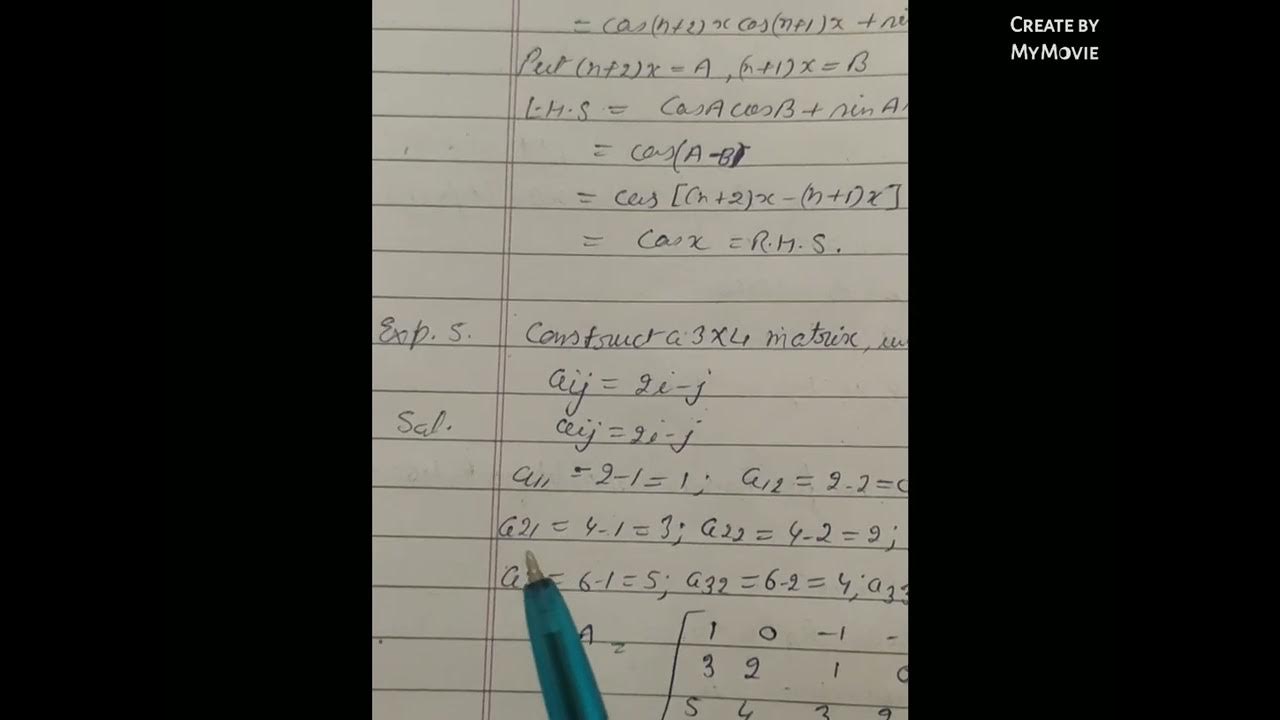 CREATE BY
MYMOVIE
= cos(n+2)x cos(n+1)x +
Put (n+2)x = A, (n+1)x = B
L.H.S = CosA cosB + sin A
= cos(A-B)
= cos [(n+2)x - (n+1)x]
= Cosx = R.H.S.
Exp. 5. Construct a 3x4 matrix,
aij = 2i-j
Sol. aij = 2i-j
a11 = 2-1 = 1; a12 = 2-2 =
a21 = 4-1 = 3; a22 = 4-2 = 2;
= 6-1 = 5; a32 = 6-2 = 4; a33
A = [ 1 0 -1 -
3 2 1
5 4 3 2